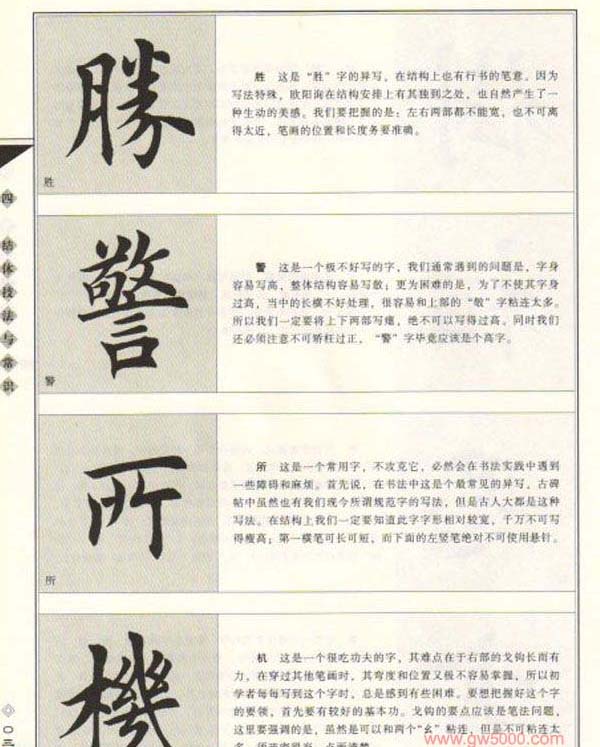 四 结体技法与常识
勝
胜
胜 这是“胜”字的异写，在结构上也有行书的笔意。因为
写法特殊，欧阳询在结构安排上有其独到之处，也自然产生了一
种生动的美感。我们要把握的是：左右两部都不能宽，也不可离
得太近，笔画的位置和长度务要准确。
警
警
警 这是一个极不好写的字，我们通常遇到的问题是，字身
容易写高，整体结构容易写散；更为困难的是，为了不使其字身
过高，当中的长横不好处理，很容易和上部的“敬”字粘连太多。
所以我们一定要将上下两部写瘪，绝不可以写得过高。同时我们
还必须注意不可矫枉过正，“警”字毕竟应该是个高字。
所
所
所 这是一个常用字，不攻克它，必然会在书法实践中遇到
一些障碍和麻烦。首先说，在书法中这是个最常见的异写，古碑
帖中虽然也有我们现今所谓规范字的写法，但是古人大都是这种
写法。在结构上我们一定要知道此字字形相对较宽，千万不可写
得瘦高；第一横笔可长可短，而下面的左竖笔绝对不可使用悬针。
機
机 这是一个很吃功夫的字，其难点在于右部的戈钩长而有
力，在穿过其他笔画时，其弯度和位置又极不容易掌握，所以初
学者每每写到这个字时，总是感到有些困难。要想把握好这个字
的要领，首先要有较好的基本功。戈钩的要点应该是笔法问题，
这里要强调的是，虽然是可以和两个“幺”粘连，但是不可粘连太
www.gw5000.com